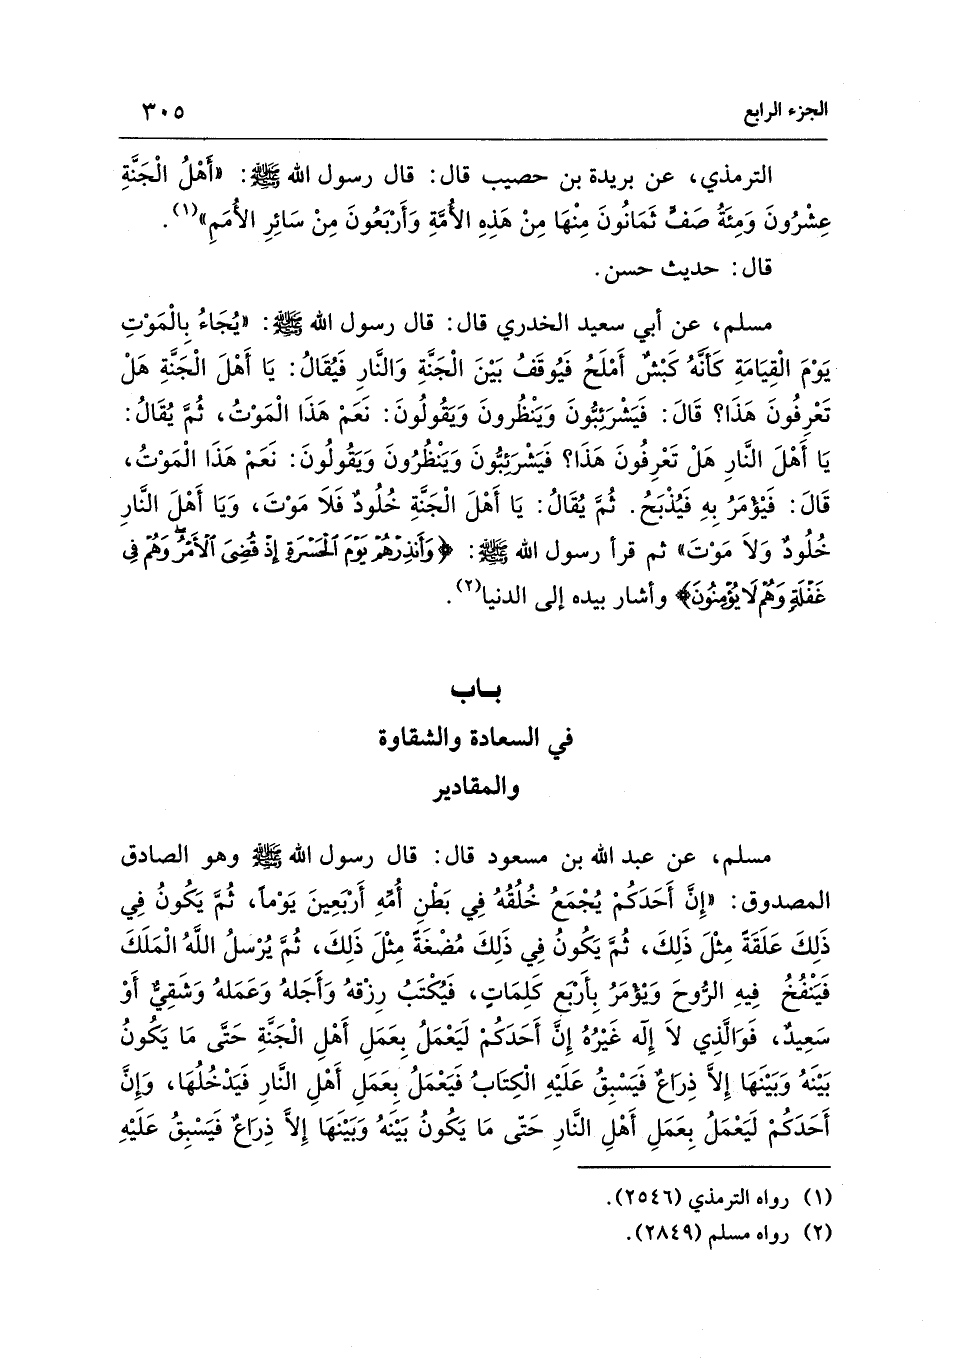 الجزء الرابع
٣٠٥
الترمذي، عن بريدة بن حصيب قال: قال رسول الله ﷺ: «أَهْلُ الْجَنَّةِ
عِشْرُونَ وَمِئَةُ صَفٍّ ثَمَانُونَ مِنْهَا مِنْ هَذِهِ الأُمَّةِ وَأَرْبَعُونَ مِنْ سَائِرِ الأُمَمِ»(١).
قال: حديث حسن.
مسلم، عن أبي سعيد الخدري قال: قال رسول الله ﷺ: «يُجَاءُ بِالْمَوْتِ
يَوْمَ الْقِيَامَةِ كَأَنَّهُ كَبْشٌ أَمْلَحُ فَيُوقَفُ بَيْنَ الْجَنَّةِ وَالنَّارِ فَيُقَالُ: يَا أَهْلَ الْجَنَّةِ هَلْ
تَعْرِفُونَ هَذَا؟ قَالَ: فَيَشْرَئِبُّونَ وَيَنْظُرونَ وَيَقُولُونَ: نَعَمْ هَذَا الْمَوْتُ، ثُمَّ يُقَالُ:
يَا أَهْلَ النَّارِ هَلْ تَعْرِفُونَ هَذَا؟ فَيَشْرَئِبُّونَ وَيَنْظُرُونَ وَيَقُولُونَ: نَعَمْ هَذَا الْمَوْتُ،
قَالَ: فَيُؤْمَرُ بِهِ فَيُذْبَحُ. ثُمَّ يُقَالُ: يَا أَهْلَ الْجَنَّةِ خُلُودٌ فَلَا مَوْتَ، وَيَا أَهْلَ النَّارِ
خُلُودٌ وَلاَ مَوْتَ» ثم قرأ رسول الله ﷺ: ﴿وَأَنذِرْهُمْ يَوْمَ الْحَسْرَةِ إِذْ قُضِيَ الْأَمْرُ وَهُمْ فِي
غَفْلَةٍ وَهُمْ لَا يُؤْمِنُونَ﴾ وأشار بيده إلى الدنيا(٢).
بـاب
في السعادة والشقاوة
والمقادير
مسلم، عن عبد الله بن مسعود قال: قال رسول الله ﷺ وهو الصادق
المصدوق: «إِنَّ أَحَدَكُمْ يُجْمَعُ خُلُقُهُ فِي بَطْنِ أُمِّهِ أَرْبَعِينَ يَوْماً، ثُمَّ يَكُونُ فِي
ذَلِكَ عَلَقَةً مِثْلَ ذَلِكَ، ثُمَّ يَكُونُ فِي ذَلِكَ مُضْغَةً مِثْلَ ذَلِكَ، ثُمَّ يُرْسلُ اللَّهُ الْمَلَكَ
فَيَنْفُخُ فِيهِ الرُّوحَ وَيُؤْمَرُ بِأَرْبَعِ كَلِمَاتٍ، فَيُكْتَبُ رِزْقهُ وَأَجلهُ وَعَملهُ وَشَقِيٌّ أَوْ
سَعِيدٌ، فَوَالَّذِي لاَ إِلَه غَيْرُهُ إِنَّ أَحَدَكُمْ لَيَعْمَلُ بِعَمَلِ أَهْلِ الْجَنَّةِ حَتَّى مَا يَكُونُ
بَيْنَهُ وَبَيْنَهَا إِلاَّ ذِرَاعٌ فَيَسْبِقُ عَلَيْهِ الْكِتَابُ فَيَعْمَلُ بِعَمَلِ أَهْلِ النَّارِ فَيَدْخُلُهَا، وَإِنَّ
أَحَدَكُمْ لَيَعْمَلُ بِعَمَلِ أَهْلِ النَّارِ حَتّى مَا يَكُونُ بَيْنَهُ وَبَيْنهَا إِلاَّ ذِرَاعٌ فَيَسْبِقُ عَلَيْهِ
(١) رواه الترمذي (٢٥٤٦).
(٢) رواه مسلم (٢٨٤٩).